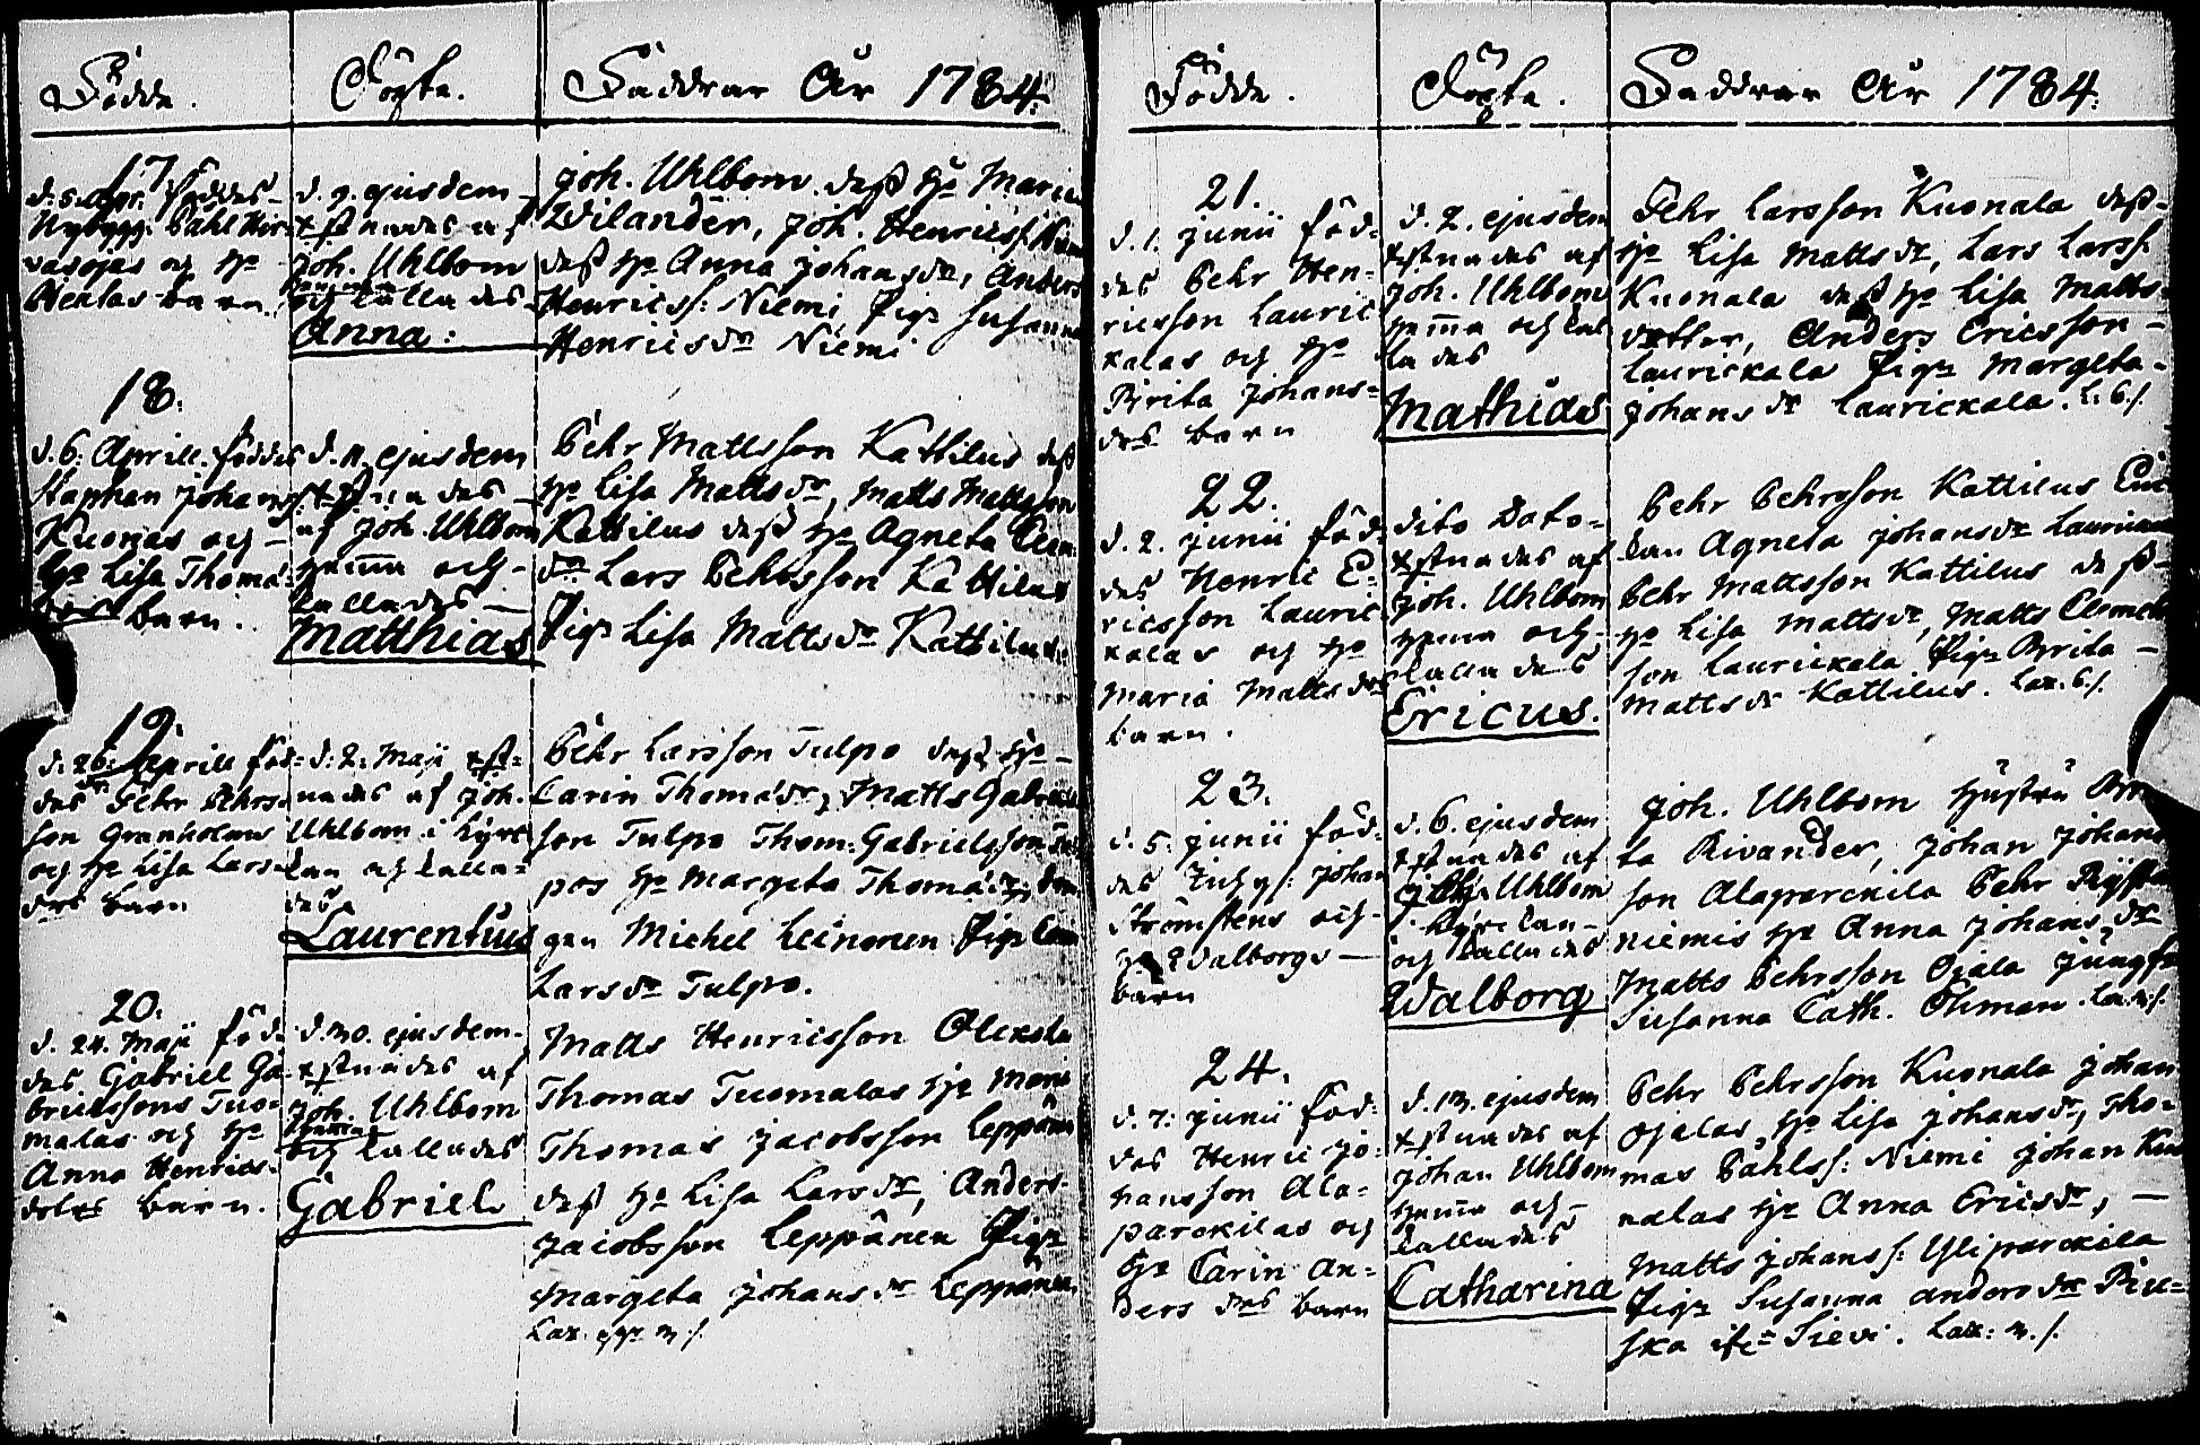 Födde.
Döpte.
Faddrar År 1784.
17
d. 5. Apr. föddes
Nybygg: Påhl Hir-
vasojas och H:o
Beatas barn.
d. 9. ejusdem
Xstnades af
Joh. Uhlbom
hemma
och kallades
Anna:
Joh. Uhlbom. dess H:o Maria
Wilander, Joh. Henricss: Niemi
dess H:o Anna Johansdr, Anders
Henricss: Niemi Pig: Susanna
Henricsdr Niemi
18.
d. 6. Aprill. föddes
Staphan Johanss
Kuonas och
H:o Lisa Thomæ
drs barn.
d. 11. ejusdem
Xstnades
af Joh. Uhlbom
hemma och
kallades
Matthias
Pehr Mattsson Kattilus dess
H:o Lisa Mattsdr, Matts Mattsson
Kattilus dess H:o Agneta Clem
dr Lars Pehrsson Kattilus
Pig: Lisa Mattsdr Kattilus.
19.
d. 26. Aprill föd-
des Pehr Pehrs-
son Granholms
och H:o Lisa Lars-
drs barn
d. 2. Maji Xst-
nades af Joh.
Uhlbom i Kyrc
kan och kalla-
des
Laurentius
Pehr Larsson Tulpo dess H:o
Carin Thomædr, Matts Gabriels
son Tulpo Thom: Gabrielsson Tul
pos H:o Margeta Thomædr, Drän
gen Michel Leinonen Pig: Carin
Larsdr Tulpo.
20.
d. 24. Maji föd-
des Gabriel Ga-
brielssons Tuo-
malas och H:o
Anna Henrics-
dotrs barn.
d. 30. ejusdem
Xstnades af
Joh. Uhlbom
hemma
och kallades
Gabriel
Matts Henricsson Oleksla
Thomas Tuomalas H:o Maria
Thomas Jacobsson Leppänen
dess H:o Lisa Larsdr, Anders
Jacobsson Leppänen Pig:
Margeta Johansdr Leppänen.
Födde.
Döpte.
Faddrar År 1784.
21.
d. 1. Junii föd-
des Pehr Hen-
ricsson Lauric
kalas och H:o
Brita Johans-
drs barn
d. 2. ejusdem
Xstnades af
Joh. Uhlbom
hemma och kal
lades
Mathias
Pehr Larsson Kuonala dess
H:o Lisa Mattsdr, Lars Larss:
Kuonala dess H:o Lisa Matts
dotter, Anders Ericsson
Laurickala Pig: Margeta
Johansdr Laurickala. L. 6./.
22.
d. 2. Junii föd-
des Henric E-
ricsson Lauric
kalas och H:o
Maria Mattsdrs
barn.
dito Dato
Xstnades af
Joh. Uhlbom
hemma och
kallades
Ericus.
Pehr Pehrsson Kattilus Enc
kan Agneta Johansdr Laurinan
Pehr Mattsson Kattilus dess
H:o Lisa Mattsdr, Matts Clemets
son Laurickala Pig: Brita
Mattsdr Kattilus. Lax. 6./.
23.
d. 5. Junii föd-
des Johan
Strömstens och
H:o Walborgs
barn
d. 6. ejusdem
Xstnades af
Joh. Uhlbom
i Kyrckan
och kallades
Walborg
Joh. Uhlbom Hustru Bri
ta Rivander, Johan Johans
son Alaparckila Pehr
Niemis H:o Anna Johansdr
Matts Pehrsson Ojala Jungfr
Susanna Cath. Öhman.
24.
d. 7. Junii föd-
des Henric Jo-
hansson Ala-
parckilas och
H:o Carin An-
ders drs barn
d. 13. ejusdem
Xstnades af
Johan Uhlbom
hemma och
kallades
Catharina
Pehr Pehrsson Kuonala Johan
Ojalas H:o Lisa Johansdr, Tho-
mas Påhlss: Niemi Johan Kuo
nalas H:o Anna Ericsdr,
Matts Johanss: Yliparckila
Pig: Susanna Andersdr
Sievi.